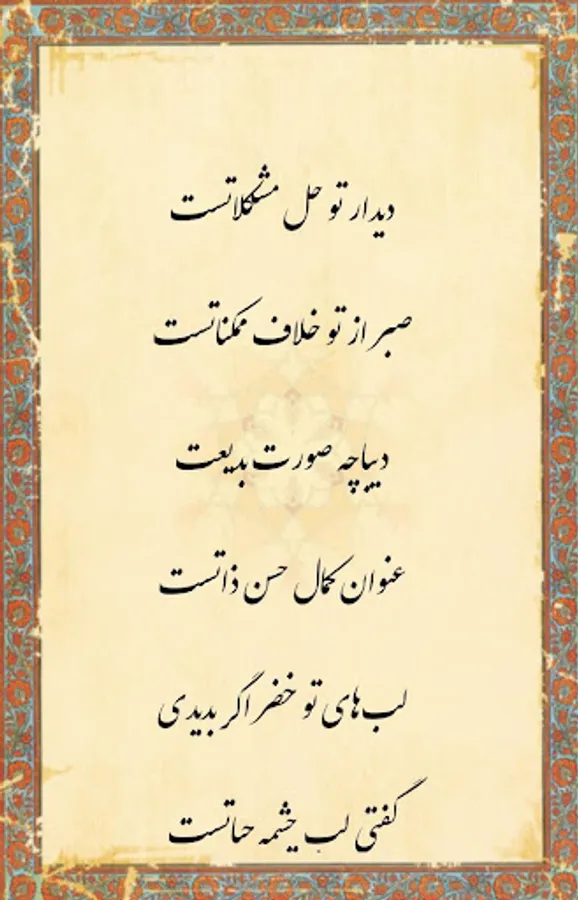 دیدار تو حل مشکلاتست
صبر از تو خلاف ممکناتست
دیباچه صورت بدیعت
عنوان کمال حسن ذاتست
لب‌های تو خضر اگر بدیدی
گفتی لب چشمه حیاتست